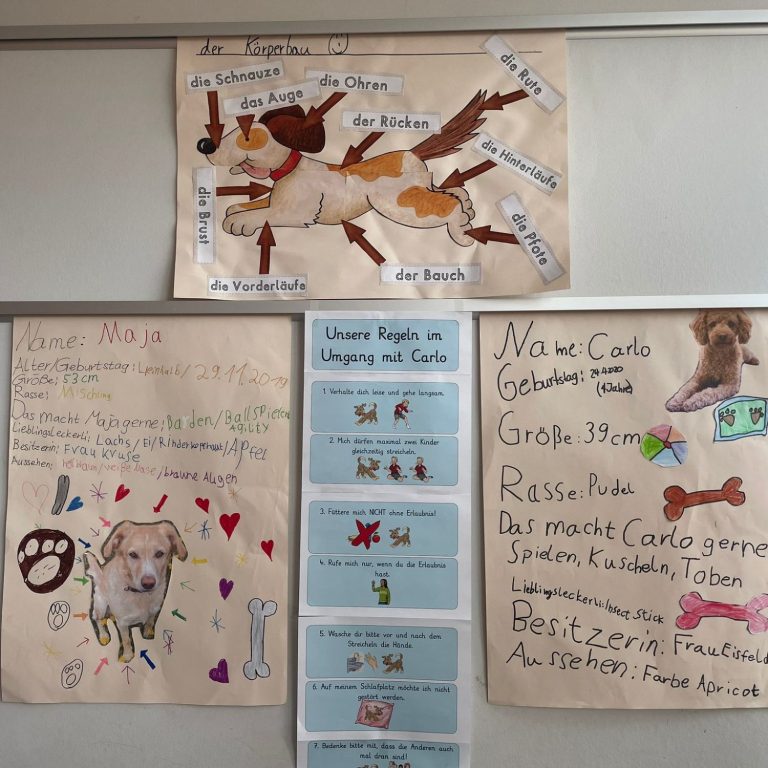 der Körperbau
die Schnauze
das Auge
die Ohren
die Rute
der Rücken
die Hinterläufe
die Brust
die Pfote
die Vorderläufe
der Bauch
Name: Maja
Alter/Geburtstag: 29.11.2019
Größe: 53 cm
Rasse: Mischling
Das macht Maja gerne: Barden/Ballspielen
Agility
Lieblingsleckerli: Lachs/Ei/Rinderkopfhaut/Apfel
Besitzerin: Frau Kruse
Aussehen: braune Augen
Unsere Regeln im
Umgang mit Carlo
1. Verhalte dich leise und gehe langsam.
2. Mich dürfen maximal zwei Kinder
gleichzeitig streicheln.
3. Füttere mich NICHT ohne Erlaubnis!
4. Rufe mich nur, wenn du die Erlaubnis
hast.
5. Wasche dir bitte vor und nach dem
Streicheln die Hände.
6. Auf meinem Schlafplatz möchte ich nicht
gestört werden.
7. Bedenke bitte mit, dass die Anderen auch
mal dran sind!
Name: Carlo
Geburtstag: 24.4.2020
(4 Jahre)
Größe: 39 cm
Rasse: Pudel
Das macht Carlo gerne
Spielen, Kuscheln, Toben
Lieblingsleckerli: Insect Stick
Besitzerin: Frau Eisfeld
Aussehen: Farbe Apricot